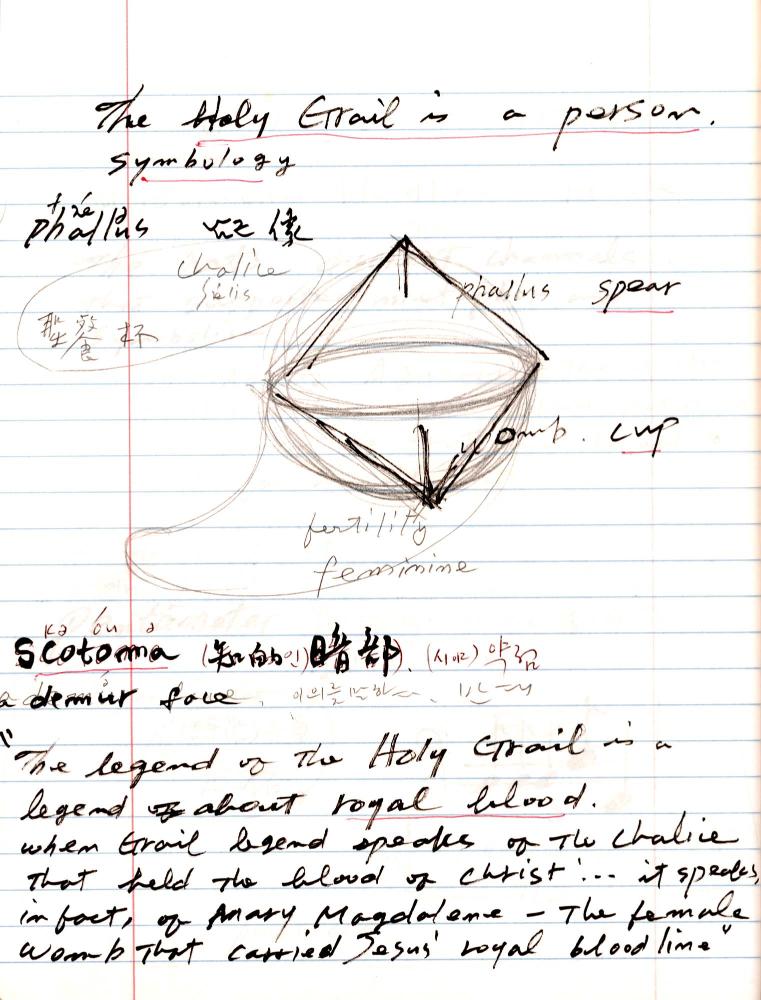 The Holy Grail is a person.
symbology
phallus 像
chalice
聖餐杯
phallus spear
womb. cup
fertility
feminine
scotoma (知的인) 暗部). (시야) 약점
a demur face. 이의를 말하
"The legend of the Holy Grail is a
legend about royal blood.
when Grail legend speaks of the chalice
that held the blood of Christ... it speaks,
in fact, of Mary Magdalene - The female
womb that carried Jesus' royal bloodline"